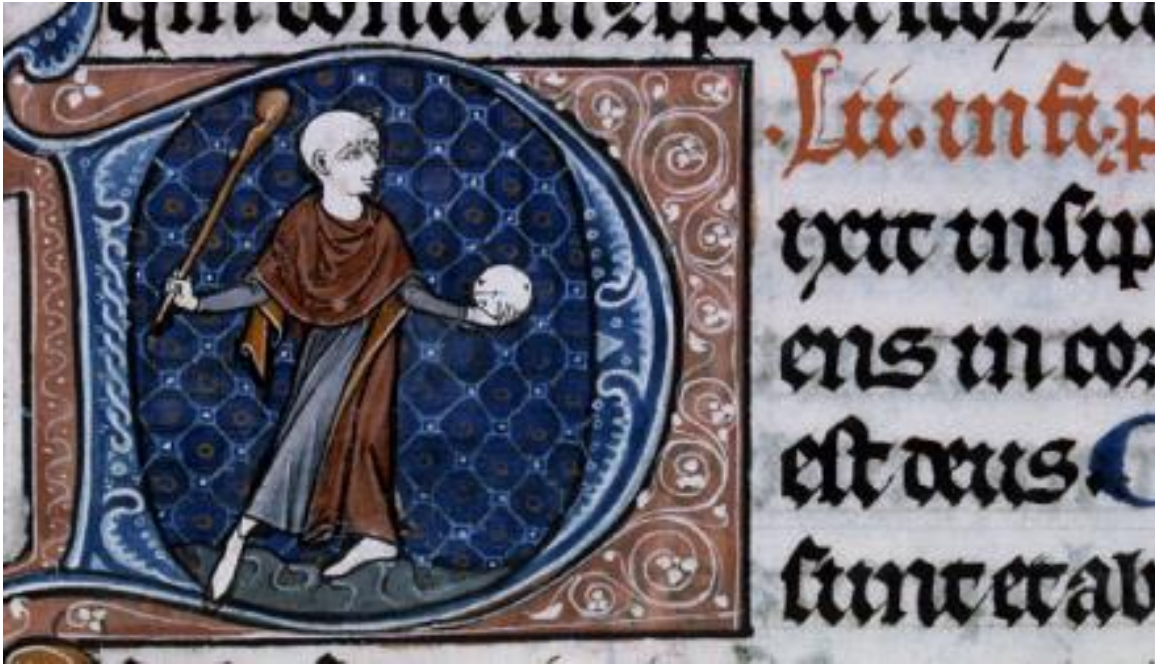 ·Lii· in fi· p
Dixit insip
ens in cor
est deus. C
sunt et ab